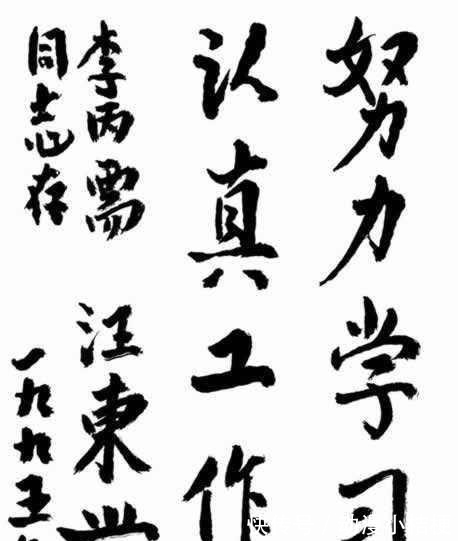 努力学习
认真工作
李丙需
同志存
汪東
一九九五